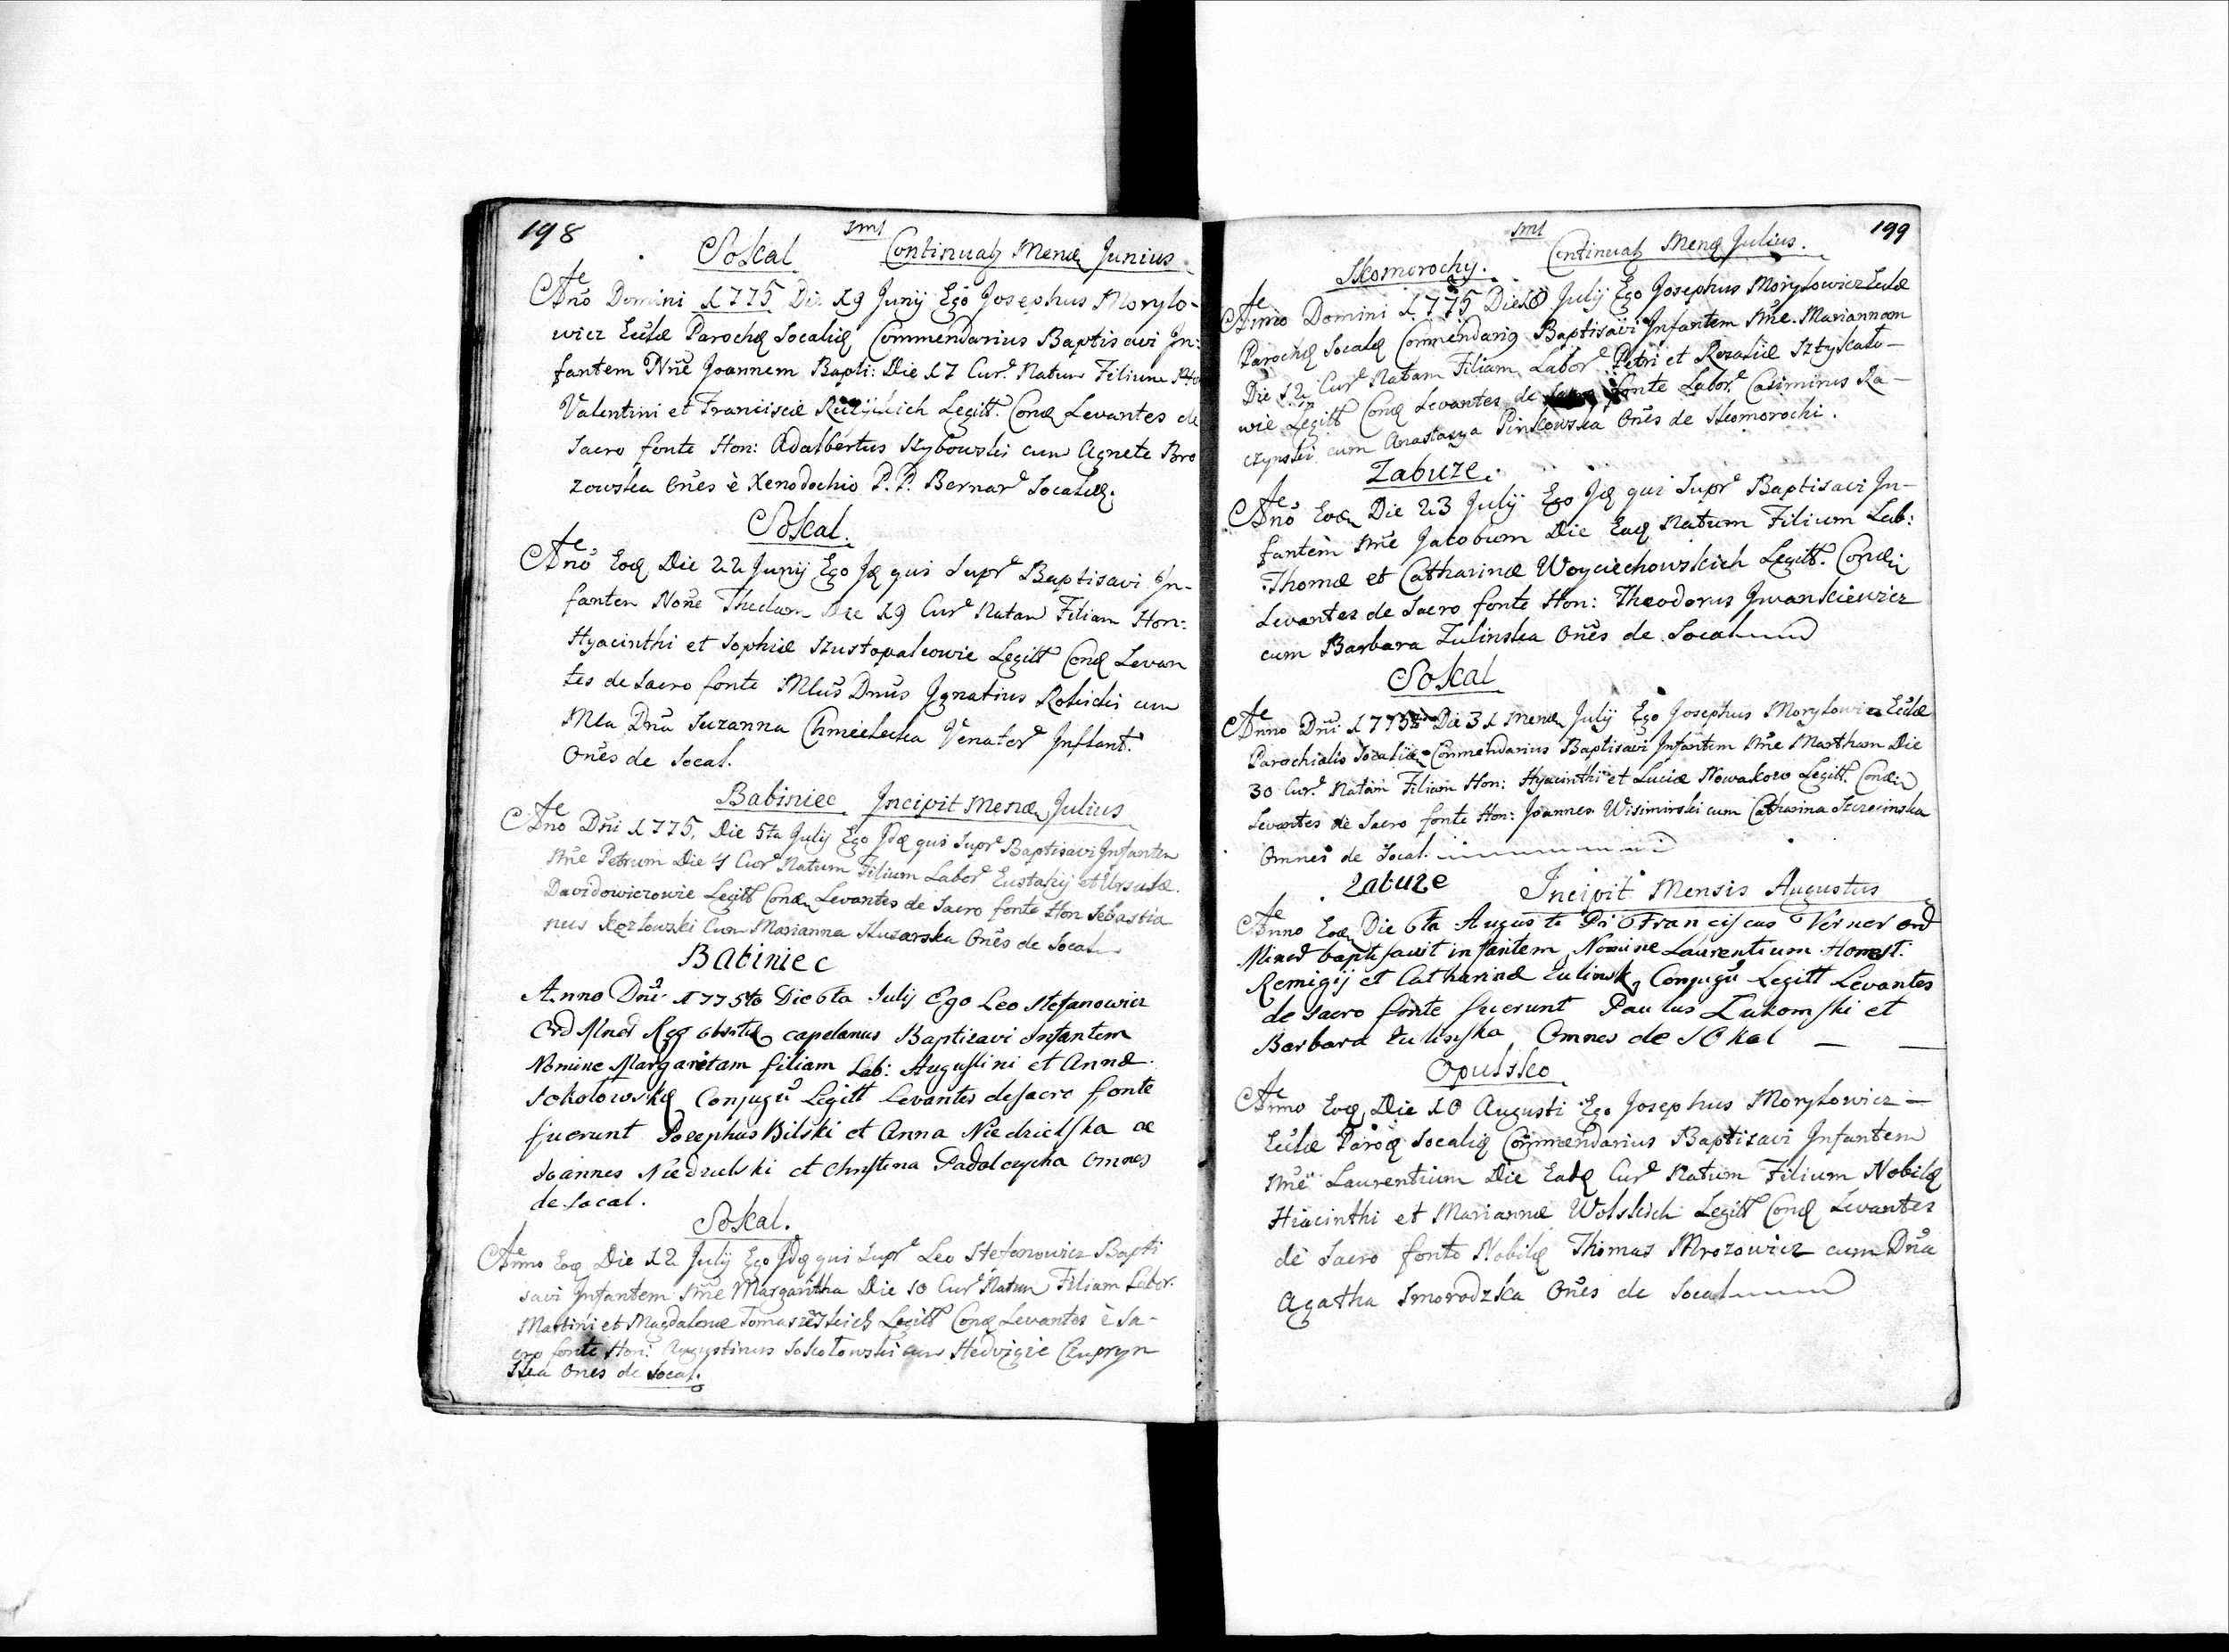 198
Sokal Continuatꝫ Mens Junius.
Año Domini 1775 Die 19 Junij Ego Josephus Morylo-
wicz Eulæ Paroch Socali Commendarius Baptisavi In:
fantem Nñe Joannem Bapti: Die 17 Cur. Natum Filium
Valentini et Franciscæ Legitt. Con Levantes de
Sacro fonte Hon: Adalbertus Szybowski cum Agnete Bro
zowska Onẽs è Xenodochio P.P. Bernar Socali.
Sokal.
Año Eod Die 22 Junij Ego Id qui Supr Baptisavi In-
fantem Noñe Theclam Die 19 Cur Natam Filiam Hon:
Hyacinthi et Sophiæ Szustopalcowie Legitt Con Levan
tes de Sacro fonte Mlus Dnus Ignatius Rokicki cum
Mla Dna Suzanna Chmielecka Venater Inflant.
Onẽs de Socal.
Babiniec Incipit Mens Julius
Año Dñi 1775, Die 5ta Julij Ego Id qui Supr Baptisavi Infantem
Nñe Petrum Die 4 Cur Natum Filium Labor Eustachij et Ursulæ.
Davidowiczowie Legitt Con Levantes de Sacro fonte Hon Sebastia
nus Kozlowski Cum Marianna Huzarska Onẽs de Socal
Babiniec
Anno Dñi 1775to Die 6ta Julij Ego Leo Stefanowicz
Ord Mnor Reg obser capelanus Baptizavi Infantem
Nomine Margaretam filiam Lab: Augustini et Annæ
Sokolowsk Conjugũ Legitt Levantes de Sacro fonte
fuerunt Josephus Bilski et Anna Niedzielska ac
Joannes Niedzielski et Christina Padolczycha Omnes
de Socal.
Sokal.
Anno Eod Die 12 Julij Ego Id qui Supr Leo Stefanowicz Bapti
savi Infantem Nñe Margaritha Die 10 Cur Natum Filiam Labor.
Martini et Magdalenæ Tomaszewskich Legitt Con Levantes è Sa-
cro fonte Hon: Augustinus Sokolowski cum Hedvigie Czupryn
ska Onẽs de Socal.
199
Skomorochy. Continuatꝫ Mens Julius.
Anno Domini 1775 Die Julij Ego Josephus Morylowicz Eulæ
Paroch Socal Commendari9 Baptisavi Infantem Nñe. Mariannam
Die 12 Cur Natam Filiam Labor Petri et Rozaliæ Sztykało-
wie Legitt Con Levantes de fonte Labor. Casimirus Ra-
czynski cum Anastasya Pinkowska Onẽs de Skomorochi.
Zabuze.
Año Eod Die 23 Julij Ego Id qui Supr Baptisavi In-
fantem Nñe Jacobum Die Ead Natum Filium Lab:
Thomæ et Catharinæ Woyciechowskich Legitt. Con
Levantes de Sacro fonte Hon: Theodorus Jwankiewicz
cum Barbara Zulinska Onẽs de Socal
Sokal
Anno Dñi 1775 Die 31 Mens Julij Ego Josephus Morylowicz Eulæ
Parochialis Socali Commendarius Baptisavi Infantem Nñe Martham Die
30 Cur. Natam Filiam Hon: Hyacinthi et Luciæ Nowakow Legitt. Con
Levantes de Sacro fonte Hon: Joannes Wisiminski cum Catharina Szczecinska
Omnes de Socal.
Zabuze Incipit Mensis Augustus
Anno Eod Die 6ta Augusti Franciscus Verner Ord
Minor baptisavit infantem Nomine Laurentium Honest:
Remigij et Catharinæ Zulinsk Conjugũ Legitt Levantes
de Sacro fonte fuerunt Paulus Lukomski et
Barbara Zulinska Omnes de Sokal
Opulsko
Anno Eod Die 10 Augusti Ego Josephus Morylowicz
Eulæ Paro Socali Commendarius Baptisavi Infantem
Nñe Laurentium Die Ead Cur Natum Filium Nobil
Hiacinthi et Mariannæ Wolskich Legitt Con Levantes
de Sacro fonte Nobil Thomas Mrozowicz cum Dña
Agatha Smorodzka Onẽs de Socal